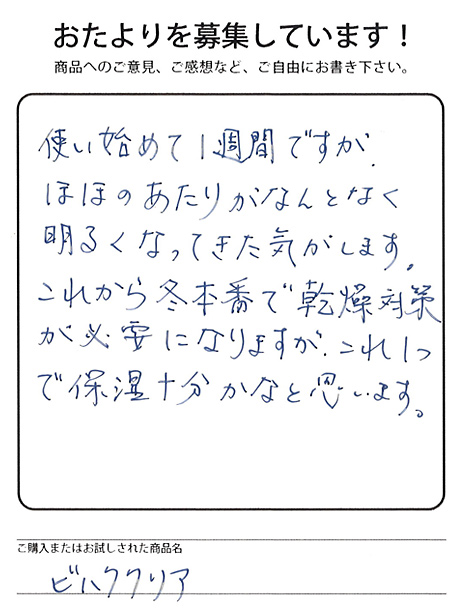 おたよりを募集しています！
商品へのご意見、ご感想など、ご自由にお書き下さい。
使い始めて1週間ですが、
ほほのあたりがなんとなく
明るくなってきた気がします。
これから冬本番で乾燥対策
が必要になりますが、これ1つ
で保湿十分かなと思います。
ご購入またはお試しされた商品名
ビハククリア